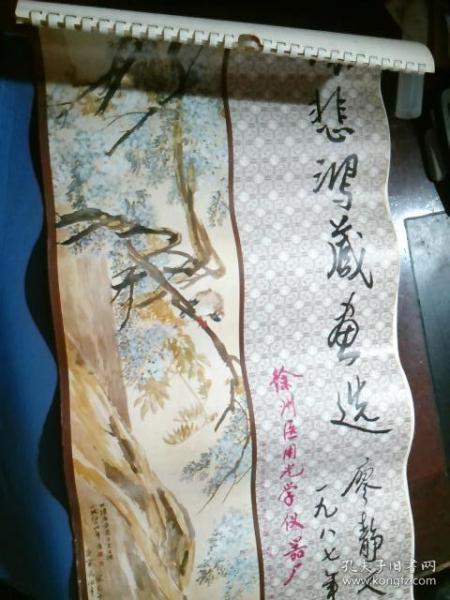 悲鸿藏画选
廖静文
一九八七年
徐州医用光学仪器厂
孔夫子旧书网
www.kongfz.com